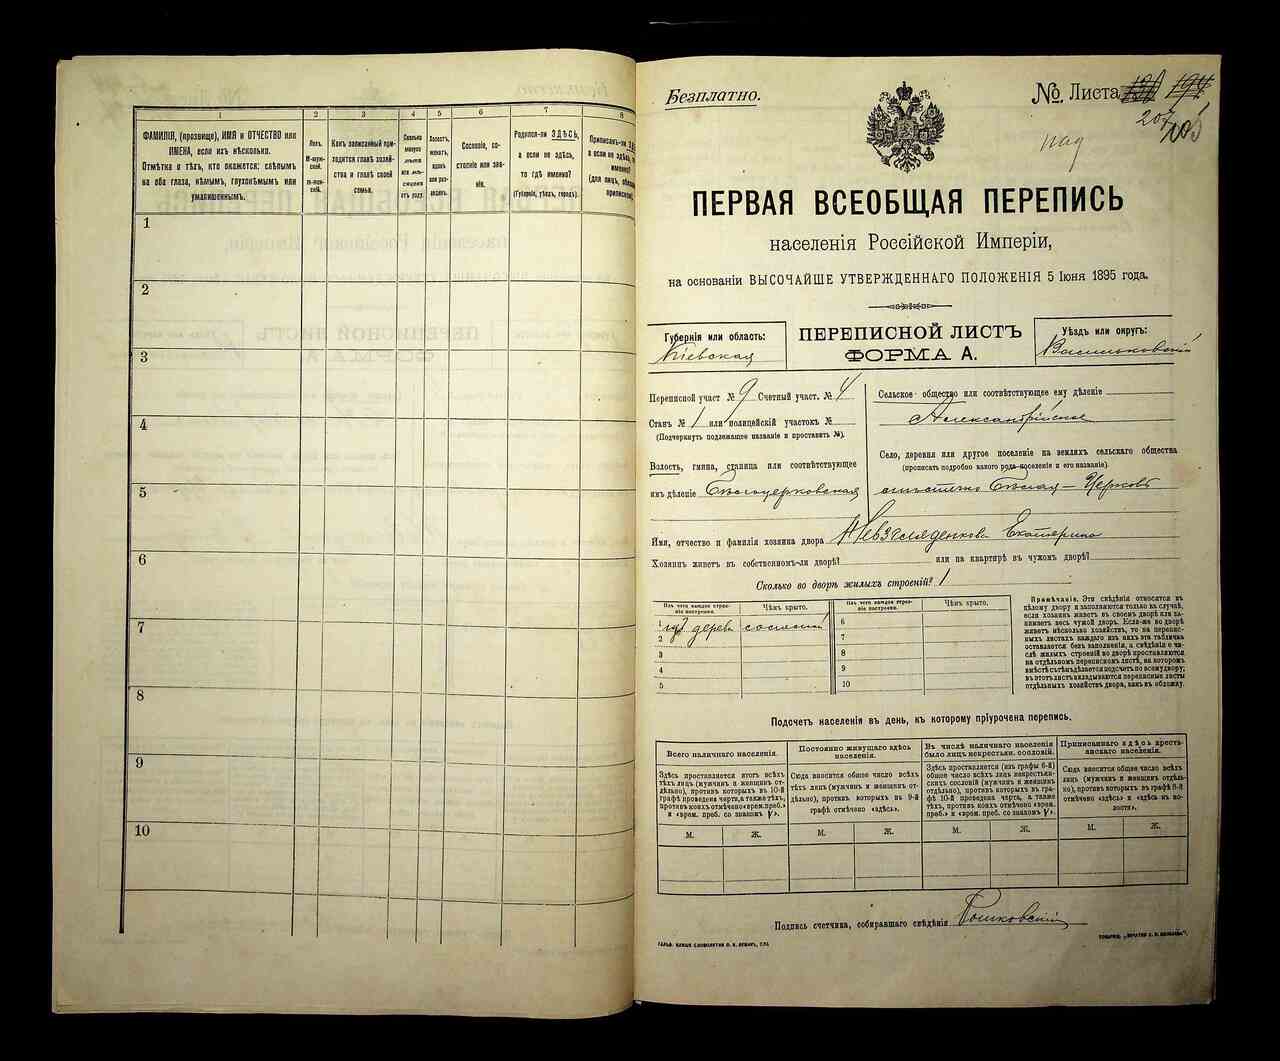 1
2
3
4
5
6
7
8
ФАМИЛІЯ, (прозвище), ИМЯ и ОТЧЕСТВО или
ИМЕНА, если ихъ нѣсколько.
Отмѣтка о тѣхъ, кто окажется: слѣпымъ
на оба глаза, нѣмымъ, глухонѣмымъ или
умалишеннымъ.
Полъ.
М-муж-
ской.
Ж-жен-
скій.
Какъ записанный при-
ходится главѣ хозяй-
ства и главѣ своей
семьи.
Сколько
минуло
лѣтъ
или мѣ-
сяцевъ
отъ роду.
Холостъ,
женатъ,
вдовъ
или раз-
веденъ.
Сословіе, со-
стояніе или зва-
ніе.
Родился-ли ЗДѢСЬ,
а если не здѣсь,
то гдѣ именно?
(Губернія, уѣздъ, городъ).
1
2
3
4
5
6
7
8
9
10
Безплатно.
№ Листа
207
ПЕРВАЯ ВСЕОБЩАЯ ПЕРЕПИСЬ
населенія Россійской Имперіи,
на основаніи ВЫСОЧАЙШЕ УТВЕРЖДЕННАГО ПОЛОЖЕНІЯ 5 Іюня 1895 года.
Губернія или область:
Кіевская
ПЕРЕПИСНОЙ ЛИСТЪ
ФОРМА А.
Уѣздъ или округъ:
Васильковскій
Переписной участ № 9 Счетный участ. № 4
Станъ № 1 или полицейскій участокъ №
(Подчеркнуть подлежащее названіе и проставить №).
Волость, гмина, станица или соотвѣтствующее
имъ дѣленіе Бѣлоцерковская
Сельское общество или соотвѣтствующее ему дѣленіе
Александрійское
Село, деревня или другое поселеніе на земляхъ сельскаго общества
(прописать подробно какого рода поселеніе и его названіе)
мѣстечко Бѣлая-Церковь
Имя, отчество и фамилія хозяина двора Невзглядекова Екатерина
Хозяинъ живетъ въ собственномъ-ли дворѣ? или на квартирѣ въ чужомъ дворѣ?
Сколько во дворѣ жилыхъ строеній? 1
Изъ чего каждое строе-
ніе построено.
Чѣмъ крыто.
Изъ чего каждое строе-
ніе построено.
Чѣмъ крыто.
1 изъ дерева соломой
2
3
4
5
6
7
8
9
10
Примѣчаніе. Эти свѣдѣнія относятся къ
цѣлому двору и заполняются только въ случаѣ,
если хозяинъ живетъ въ своемъ дворѣ или за-
нимаетъ весь чужой дворъ. Если-же во дворѣ
живетъ нѣсколько хозяйствъ, то на перепис-
ныхъ листахъ каждаго изъ нихъ эта табличка
оставляется безъ заполненія, а свѣдѣнія о чи-
слѣ жилыхъ строеній во дворѣ проставляются
на отдѣльномъ переписномъ листѣ, на которомъ
вмѣстѣ съ тѣмъ дѣлается подсчетъ по всему двору;
въ этотъ листъ вкладываются переписные листы
отдѣльныхъ хозяйствъ двора, какъ въ обложку.
Подсчетъ населенія въ день, къ которому пріурочена перепись.
Всего наличнаго населенія.
Здѣсь проставляется итогъ всѣхъ
тѣхъ лицъ (мужчинъ и женщинъ от-
дѣльно), противъ которыхъ въ 10-й
графѣ проведена черта, а также тѣхъ,
противъ коихъ отмѣчено «врем. преб.»
и «врем. преб. со знакомъ V».
Постоянно живущаго здѣсь
населенія.
Сюда вносится общее число всѣхъ
тѣхъ лицъ (мужчинъ и женщинъ от-
дѣльно), противъ которыхъ въ 9-й
графѣ отмѣчено «здѣсь».
Въ числѣ наличнаго населенія
было лицъ некрестьян. сословій.
Здѣсь проставляется (изъ графы 6-й)
общее число всѣхъ лицъ некрестьян-
скихъ сословій (мужчинъ и женщинъ
отдѣльно), противъ которыхъ въ гра-
фѣ 10-й проведена черта, а также
тѣхъ, противъ коихъ отмѣчено «врем.
преб.» и «врем. преб. со знакомъ V».
Приписаннаго здѣсь кресть-
янскаго населенія.
Сюда вносится общее число всѣхъ
лицъ (мужчинъ и женщинъ отдѣль-
но), противъ которыхъ въ графѣ 8-й
отмѣчено «здѣсь» и «здѣсь въ во-
лости».
М. Ж. М. Ж. М. Ж. М. Ж.
Подпись счетчика, собиравшаго свѣдѣнія